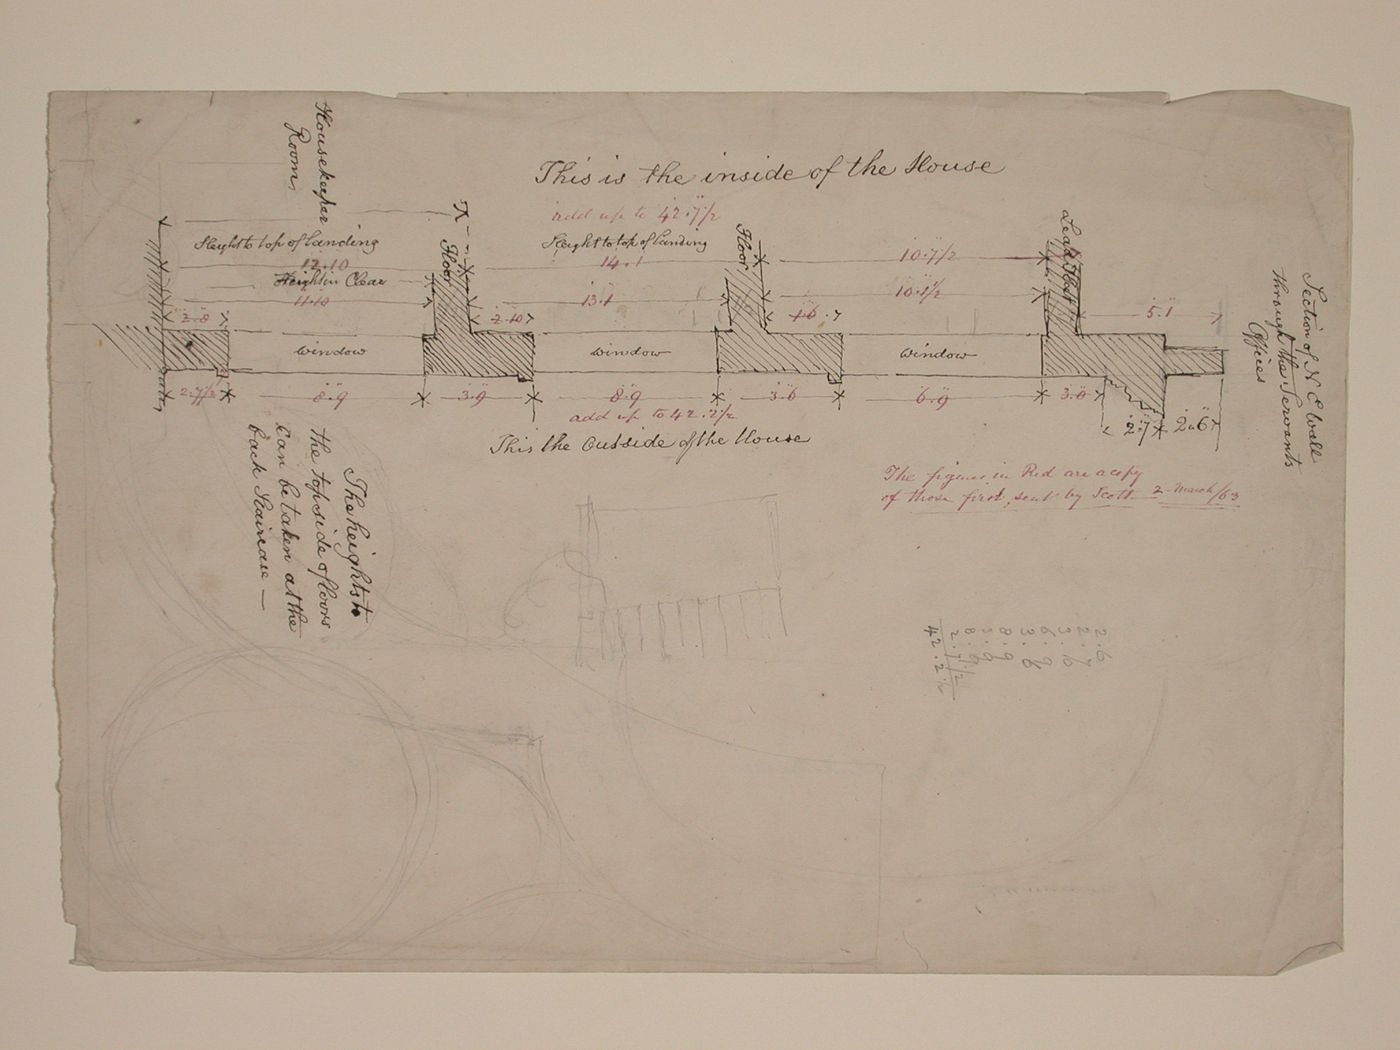 Housekeeper
Room
This is the inside of the House
add up to 42.7½
Height to top of Landing
12.10
Height in Clear
11.10
2.8
Floor
Height to top of Landing
14.1
13.1
2.10
Floor
10.7½
10.1½
1.6
Lead Flat
5.1
Section of N E Wall
through the Servants
Offices
window
window
window
2.7½
8.9
3.9
8.9
3.6
6.9
3.0
2.7
2.6
add up to 42.2½
This the Outside of the House
The figures in Red are a copy
of those first sent by Scott 2 March/63
The heights to
the topside of floors
can be taken at the
back Staircase —
2.6
2.7
3.0
6.9
3.6
8.9
3.9
8.9
2.7½
42.2½